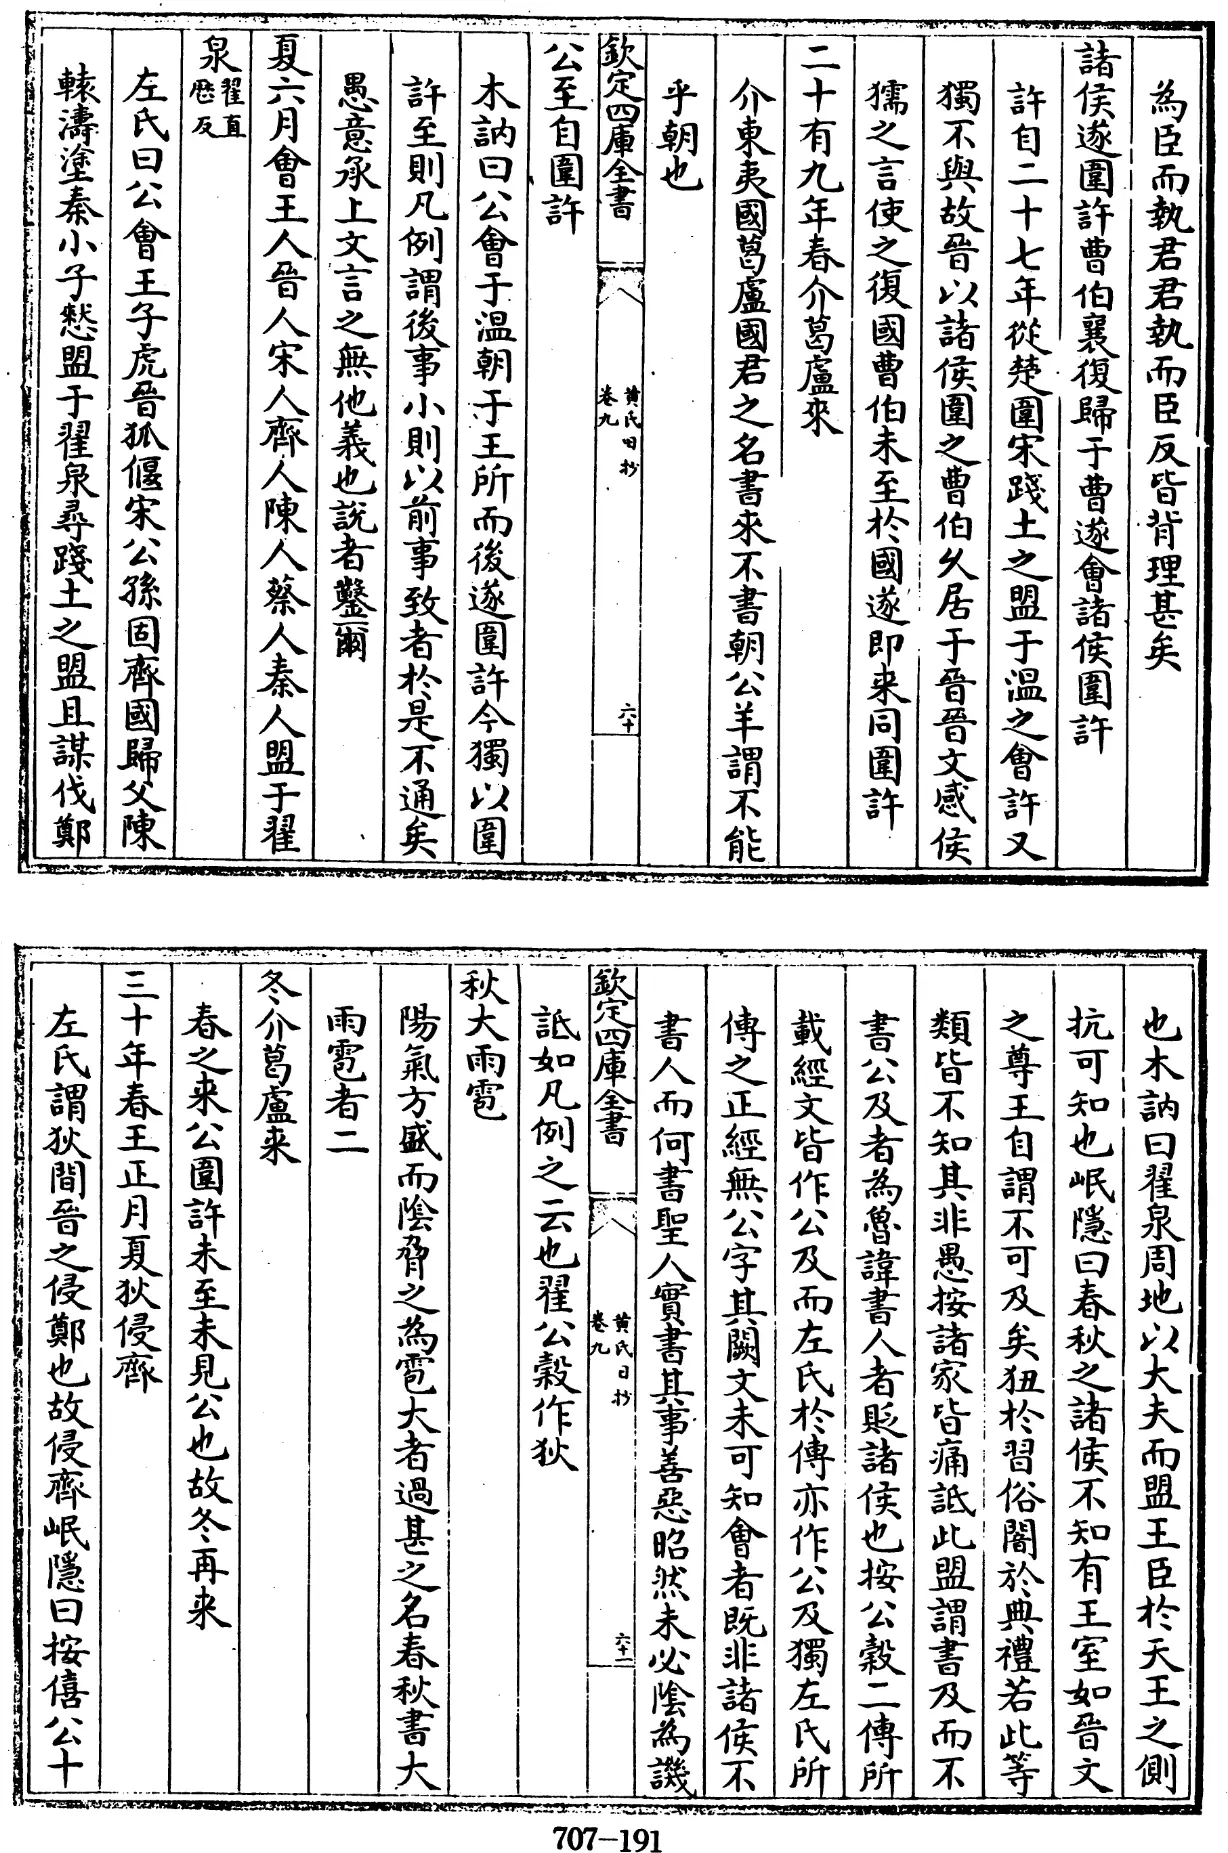 為臣而執君君執而臣反皆背理甚矣
諸侯遂圍許曹伯襄復歸于曹遂會諸侯圍許
許自二十七年從楚圍宋踐土之盟于温之會許又
獨不與故晉以諸侯圍之曹伯久居于晉晉文感侯
獳之言使之復國曹伯未至於國遂即来同圍許
二十有九年春介葛盧來
介東夷國葛盧國君之名書來不書朝公羊謂不能
乎朝也
欽定四庫全書
黄氏日抄
卷九
六十
公至自圍許
木訥曰公會于温朝于王所而後遂圍許今獨以圍
許至則凡例謂後事小則以前事致者於是不通矣
愚意承上文言之無他義也説者鑿爾
夏六月會王人晉人宋人齊人陳人蔡人秦人盟于翟
泉翟直厯反
左氏曰公會王子虎晉狐偃宋公孫固齊國歸父陳
轅濤塗秦小子憖盟于翟泉尋踐土之盟且謀伐鄭
也木訥曰翟泉周地以大夫而盟王臣於天王之側
抗可知也岷隱曰春秋之諸侯不知有王室如晉文
之尊王自謂不可及矣狃於習俗闇於典禮若此等
類皆不知其非愚按諸家皆痛詆此盟謂書及而不
書公及者為魯諱書人者貶諸侯也按公穀二傳所
載經文皆作公及而左氏於傳亦作公及獨左氏所
傳之正經無公字其闕文未可知會者既非諸侯不
書人而何書聖人實書其事善惡昭然未必陰為譏
欽定四庫全書
黄氏日抄
卷九
六十一
詆如凡例之云也翟公穀作狄
秋大雨雹
陽氣方盛而陰脅之為雹大者過甚之名春秋書大
雨雹者二
冬介葛盧来
春之来公圍許未至未見公也故冬再来
三十年春王正月夏狄侵齊
左氏謂狄間晉之侵鄭也故侵齊岷隱曰按僖公十
707-191